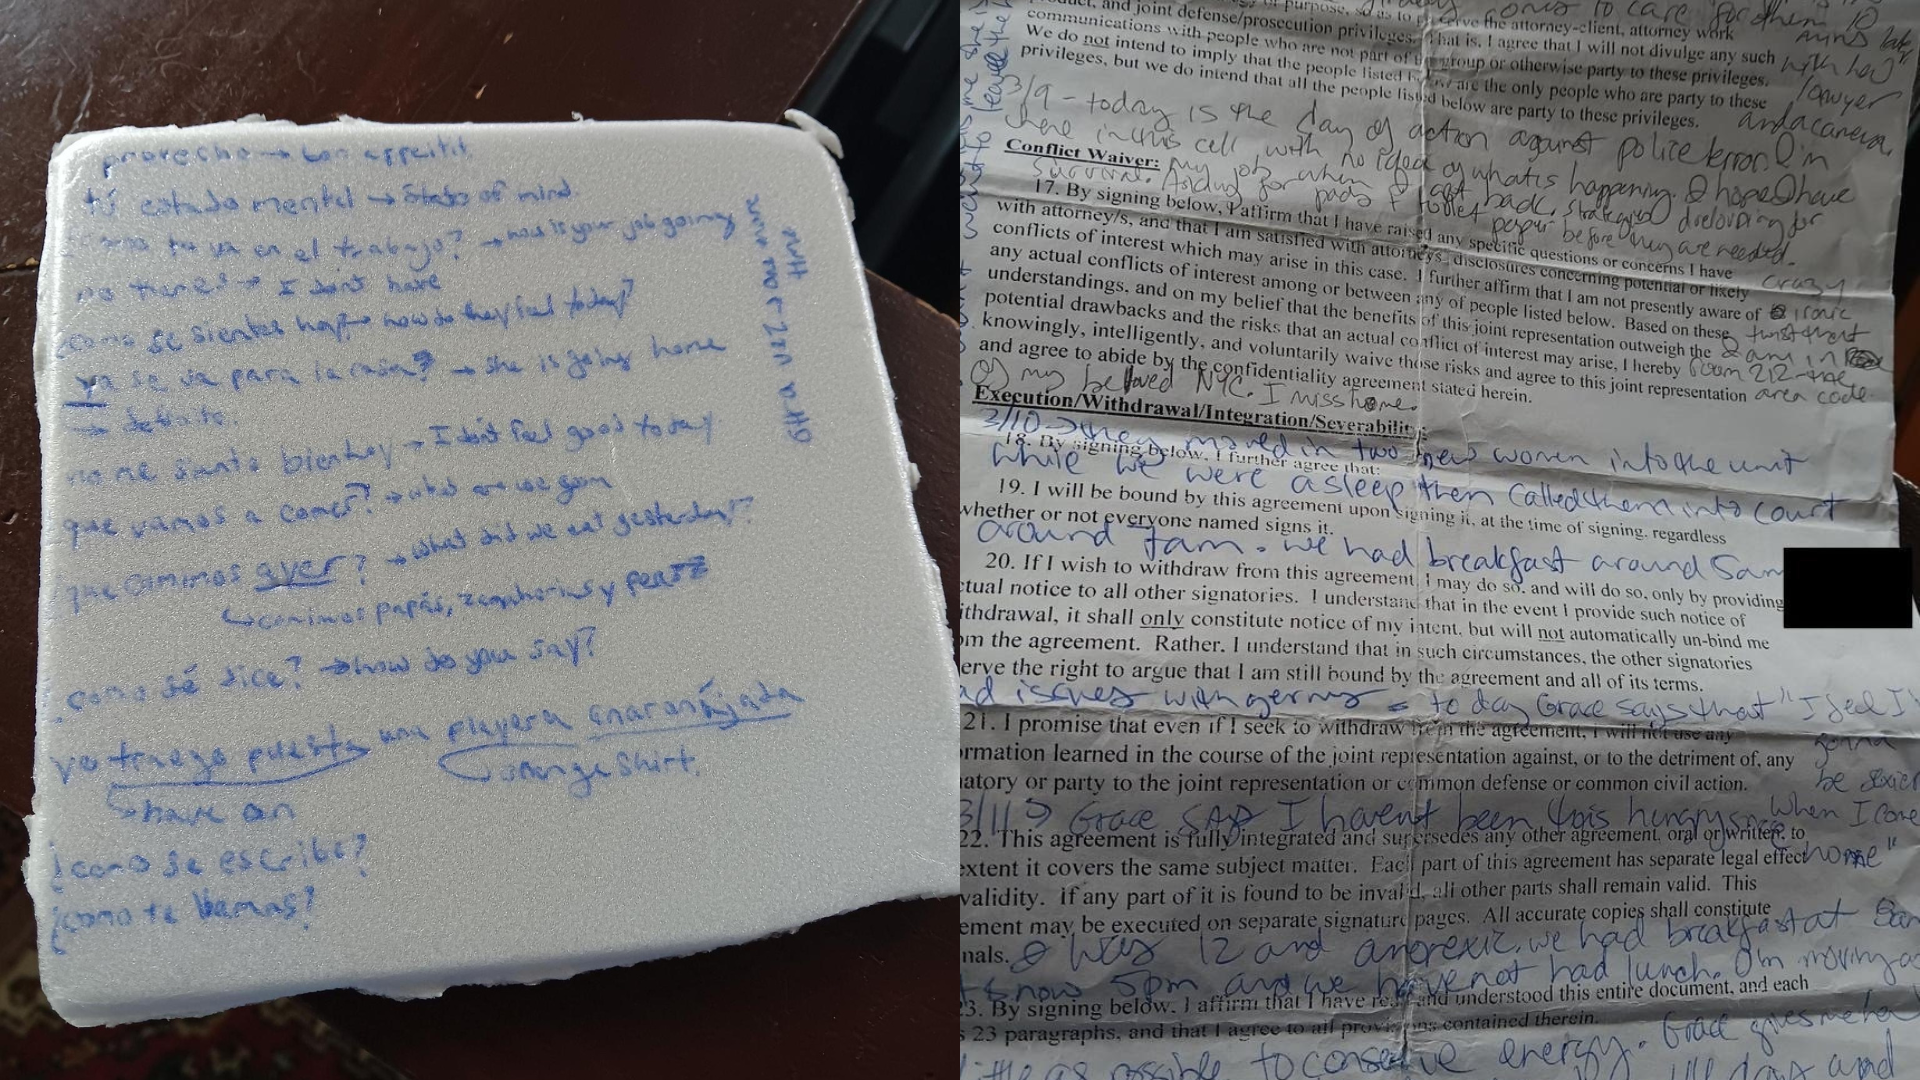 provecho → bon appetit
tú estado mental → State of mind
como tu va en el trabajo? → how is your job going
no tienes → I don't have
como se sientes hoy → how do they feel today?
ya se va para la casa? → she is going home
→ debaito.
no me siento bien hoy → I don't feel good today
que vamos a comer? → what are we
que comimos ayer? → what did we eat yesterday?
↳ comimos papas, zanahorias y
como sé dice? → how do you say?
yo traego puesta una playera anaranjada
↳ orange shirt.
↳ have on
¿como se escribe?
¿como te llamas?
product, and joint defense/prosecution privileges. That is, I agree that I will not divulge any such
communications with people who are not part of group or otherwise party to these privileges.
We do not intend to imply that the people listed are the only people who are party to these
privileges, but we do intend that all the people listed below are party to these privileges.
to care for them 10
mins late
with her
lawyer
and a camera.
3/9 - today is the day of action against police terror. I'm
here in this cell with no idea of what is happening. I hope I have
my job when I get back. Strategies I'm developing for
survival. Asking for pads & toilet paper before they are needed.
Conflict Waiver:
17. By signing below, I affirm that I have raised any specific questions or concerns I have
with attorney/s, and that I am satisfied with attorneys' disclosures concerning potential or likely
conflicts of interest which may arise in this case. I further affirm that I am not presently aware of
any actual conflicts of interest among or between any of people listed below. Based on these
understandings, and on my belief that the benefits of this joint representation outweigh the
potential drawbacks and the risks that an actual conflict of interest may arise, I hereby
knowingly, intelligently, and voluntarily waive those risks and agree to this joint representation
and agree to abide by the confidentiality agreement stated herein.
crazy
ironic
twist that
I am in
room 212 - the
area code
of my beloved NYC. I miss home.
Execution/Withdrawal/Integration/Severability:
3/10 → they moved in two new women into the unit
18. By signing below, I further agree that:
while we were asleep then called them into court
19. I will be bound by this agreement upon signing it, at the time of signing, regardless
whether or not everyone named signs it.
around 7am. we had breakfast around 5am
20. If I wish to withdraw from this agreement, I may do so, and will do so, only by providing
ctual notice to all other signatories. I understand that in the event I provide such notice of
ithdrawal, it shall only constitute notice of my intent, but will not automatically un-bind me
om the agreement. Rather, I understand that in such circumstances, the other signatories
erve the right to argue that I am still bound by the agreement and all of its terms.
ad issues with germs - today Grace says that "I feel I'
gonna
be sexier
when I come
home"
21. I promise that even if I seek to withdraw from the agreement, I will not use any
ormation learned in the course of the joint representation against, or to the detriment of, any
atory or party to the joint representation or common defense or common civil action.
3/11 → Grace I haven't been this hungry since
22. This agreement is fully integrated and supersedes any other agreement, oral or written, to
extent it covers the same subject matter. Each part of this agreement has separate legal effect
validity. If any part of it is found to be invalid, all other parts shall remain valid. This
ement may be executed on separate signature pages. All accurate copies shall constitute
nals.
I was 12 and anorexic. we had breakfast at 5am
now 5pm and we have not had lunch. I'm moving as
23. By signing below, I affirm that I have read and understood this entire document, and each
s 23 paragraphs, and that I agree to all provisions contained therein.
little as possible to conserve energy. Grace gives me her